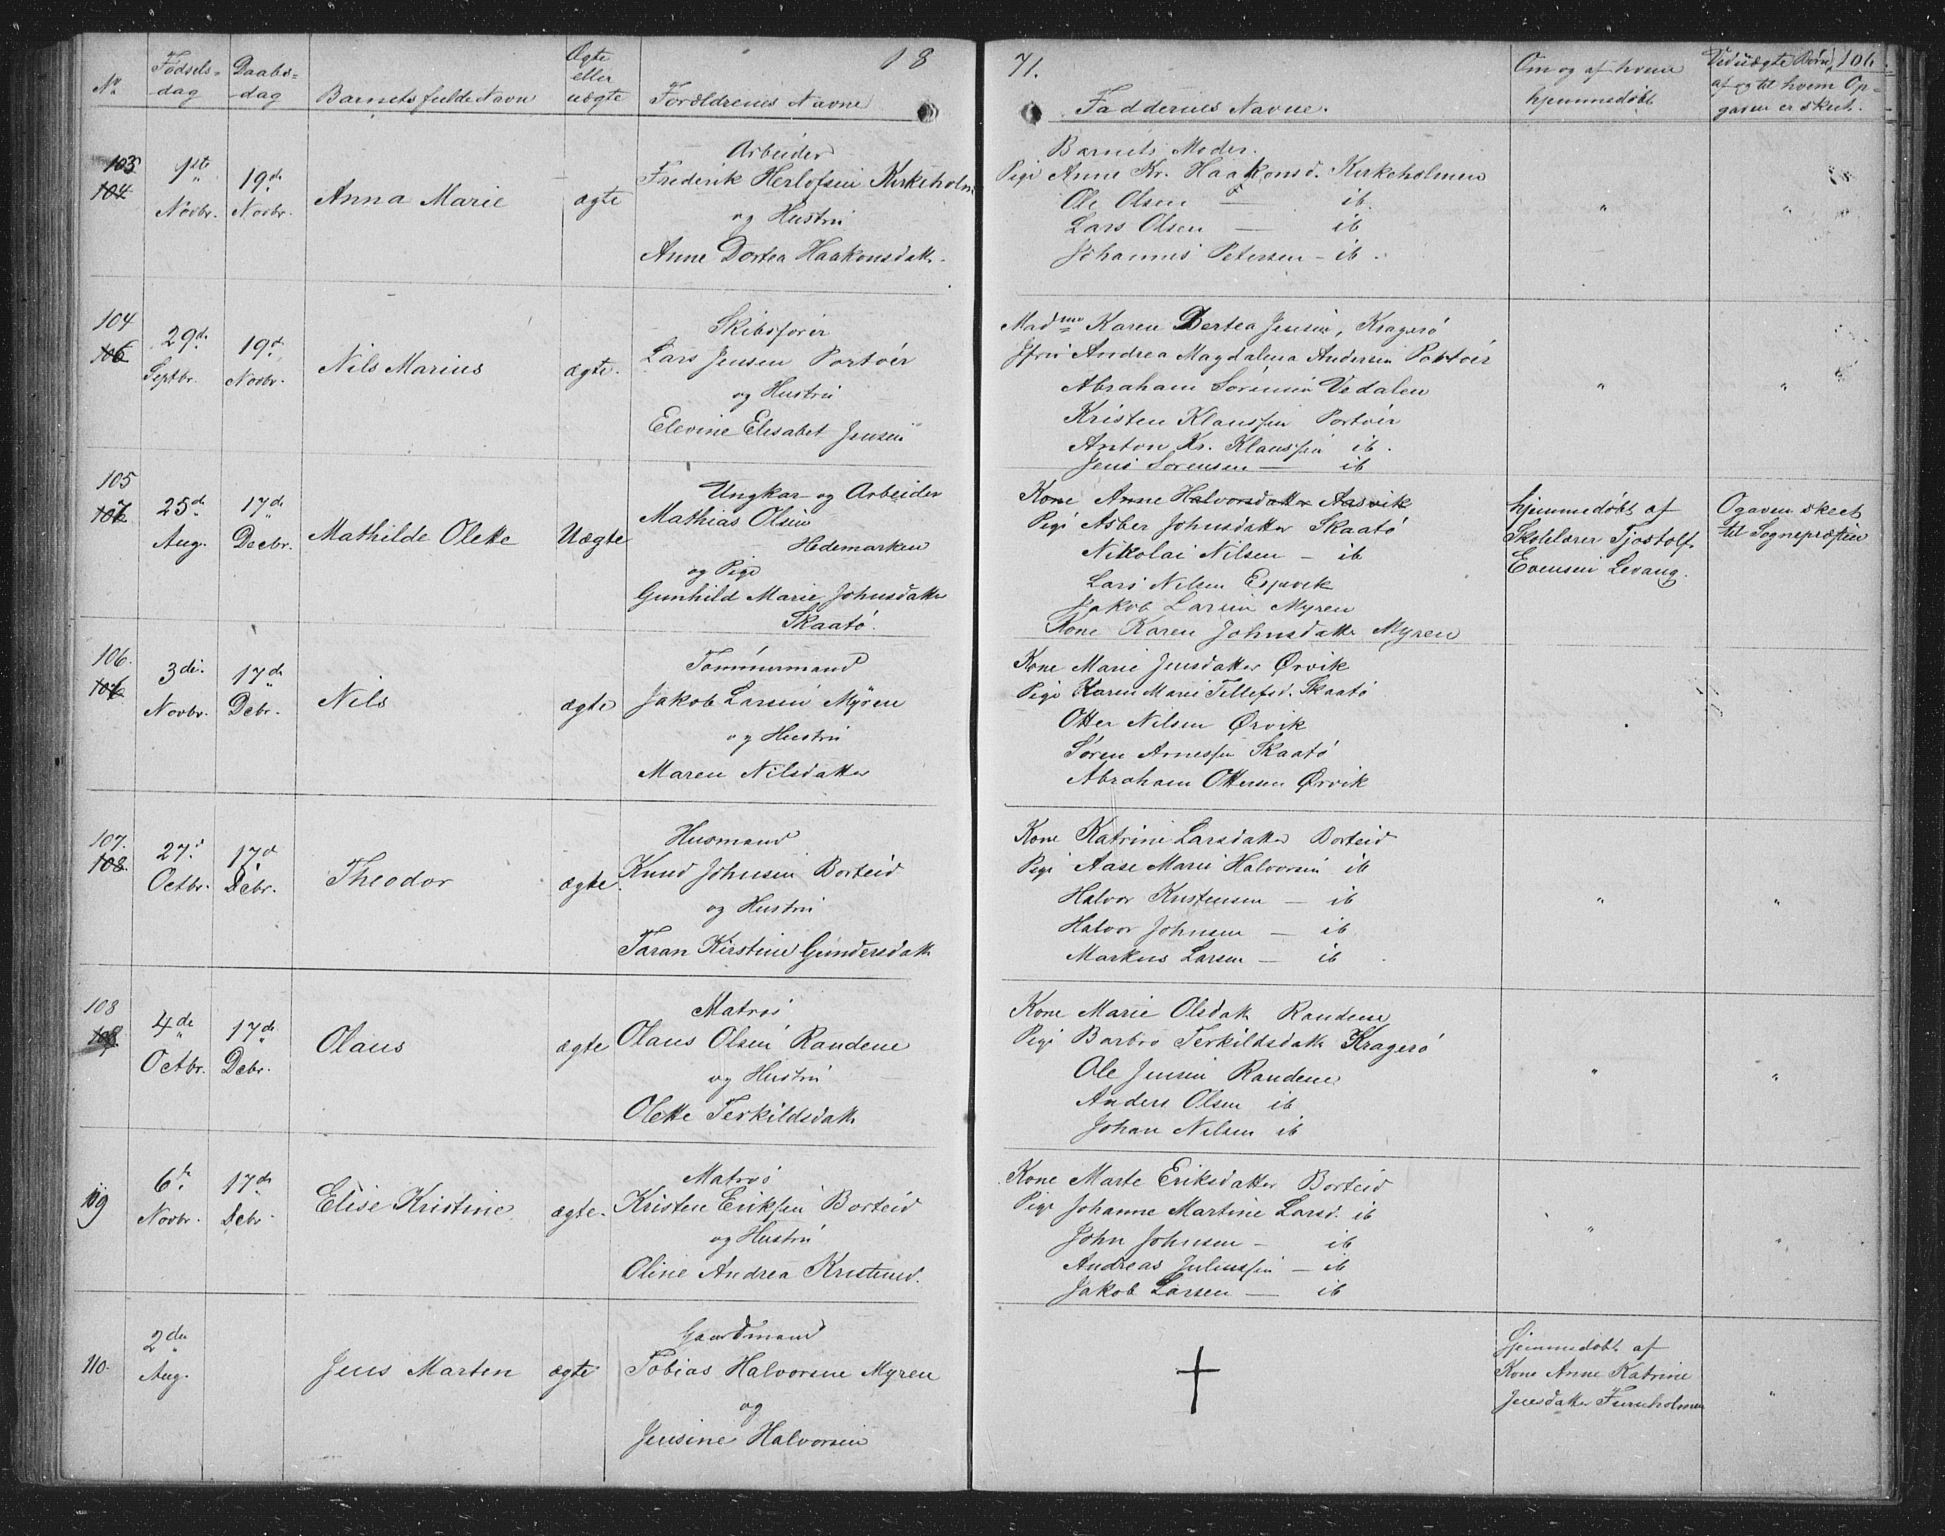 18
71.
106
No
Fødsels-
dag
Daabs-
dag
Barnets fulde Navn
Ægte
eller
uægte
Forældrenes Navne
Faddernes Navne.
Om og af hvem
hjemmedøbt
Ved uægte Børn,
af og til hvem Op-
gaven er skeet.
103
104
1ste
Novbr.
19de
Novbr.
Anna Marie
ægte
Arbeider
Frederik Herlofsen Kirkeholm
og Hustru
Anne Dortea Haakonsdatt.
Barnets Moder.
Pige Anne Kr. Haakonsd. Kirkeholmen
Ole Olsen — ib.
Lars Olsen — ib
Johannes Petersen - ib.
"
"
104
29de
Septbr.
19de
Novbr.
Nils Marius
ægte.
Skibsfører
Lars Jensen Portøer
og Hustru
Elevine Elisabet Jensen
Madme Karen Dertea Jensen, Kragerø
Jfru Andrea Magdalena Andersen Portøer
Abraham Sørensen Vedalen
Kristen Klaussen Portøer
Anton Kr. Klaussen ib.
Jens Sørensen — ib
"
"
105
25de
Aug.
17de
Decbr.
Mathilde Olette
Uægte
Ungkar og Arbeider
Mathias Olsen
Hedemarken
og Pige
Gunhild Marie Johnsdatter
Skaatø.
Kone Anne Halvorsdatter Aasvik
Pige Asber Johnsdatter Skaatø
Nikolai Nilsen — ib
Lars Nilsen Espevik
Jakob Larsen Myren
Kone Karen Johnsdatter Myren
hjemmedøbt af
Skolelærer Tjostolf
Evensen Levang.
Ogaven skeet
til Sognepræsten
106.
3die
Novbr.
17de
Debr.
Nils
ægte
Tømmermand
Jakob Larsen Myren
og Hustru
Maren Nilsdatter
Kone Marie Jensdatter Ørvik
Pige Karen Marie Tellefsd. Skaatø
Otter Nilsen Ørvik
Søren Arnessen Skaatø
Abraham Ottersen Ørvik
107.
108.
27d
Octbr.
17d
Debr.
Theodor
ægte.
Husmand
Knud Johnsen Borteid
og Hustru
Taran Kirstine Gundersdatt.
Kone Katrine Larsdatter Borteid
Pige Aase Marie Halvorsen ib
Halvor Kristensen — ib
Halvor Johnsen — ib
Markus Larsen — ib
"
"
108
4de
Octbr.
17de
Debr.
Olaus
ægte
Matros
Olaus Olsen Randene
og Hustru
Olette Terkildsdatt.
Kone Marie Olsdatt. Randene
Pige Barbro Terkildsdatt. Kragerø
Ole Jensen Randene
Anders Olsen ib
Johan Nilsen ib
"
"
109
6te
Novbr.
17de
Debr.
Elise Kristine
ægte.
Matros
Kristen Eriksen Borteid
og Hustru
Oline Andrea Kristensd.
Kone Marte Eriksdatter Borteid
Pige Johanne Martine Larsd. ib
John Johnsen - ib
Andreas Juliussen — ib
Jakob Larsen — ib
"
"
110.
2den
Aug.
Jens Marten
ægte
Gaardmand
Tobias Halvorsen Myren
og
Jensine Halvorsen
Hjemmedøbt af
Kone Anne Katrine
Jensdatter Furuholmen
"